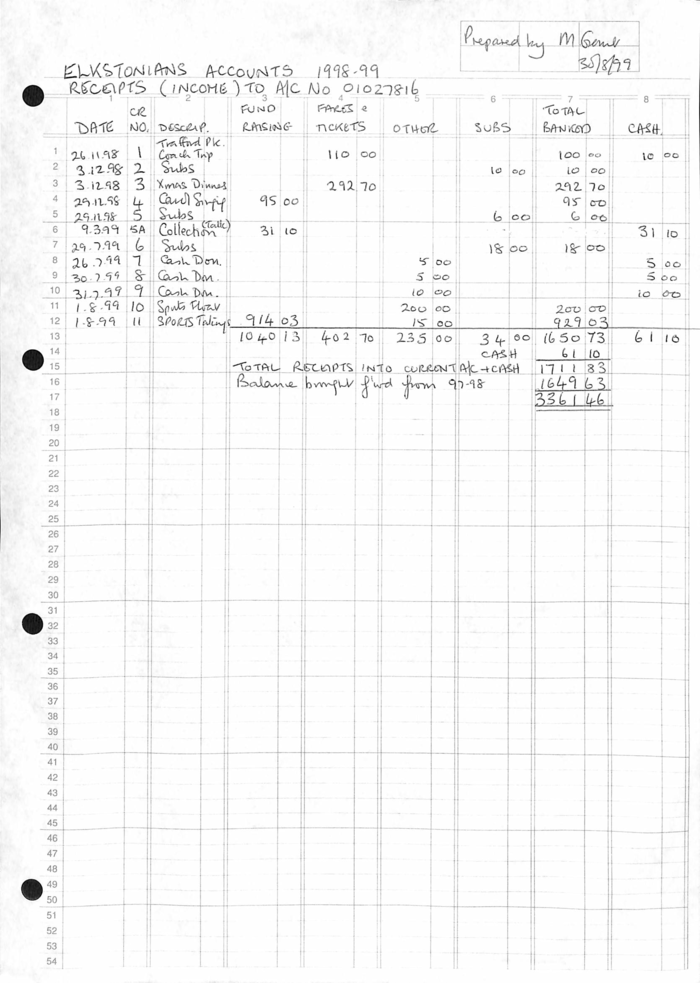 Prepared by M
ELKSTONIANS ACCOUNTS 1998-99
30/8/99
RECEIPTS (INCOME) TO A/C NO 01027816
1 2 3 4 5 6 7 8
DATE CR NO. DESCRIP. FUND RAISING FARES & TICKETS OTHER SUBS TOTAL BANKED CASH.
Trafford Pk.
1 26.11.98 1 Coach Trip 110 00 100 00 10 00
2 3.12.98 2 Subs 10 00 10 00
3 3.12.98 3 Xmas Dinner 292 70 292 70
4 29.12.98 4 Carol Singing 95 00 95 00
5 29.12.98 5 Subs 6 00 6 00
6 9.3.99 5A Collection (Talk) 31 10 31 10
7 29.7.99 6 Subs 18 00 18 00
8 26.7.99 7 Cash Don. 5 00 5 00
9 30.7.99 8 Cash Don. 5 00 5 00
10 31.7.99 9 Cash Don. 10 00 10 00
11 1.8.99 10 Sports Float 200 00 200 00
12 1.8.99 11 SPORTS Takings 914 03 15 00 929 03
13 1040 13 402 70 235 00 34 00 1650 73 61 10
14 CASH 61 10
15 TOTAL RECEIPTS INTO CURRENT A/C + CASH 1711 83
16 Balance brought f'wd from 97-98 1649 63
17 3361 46
18
19
20
21
22
23
24
25
26
27
28
29
30
31
32
33
34
35
36
37
38
39
40
41
42
43
44
45
46
47
48
49
50
51
52
53
54